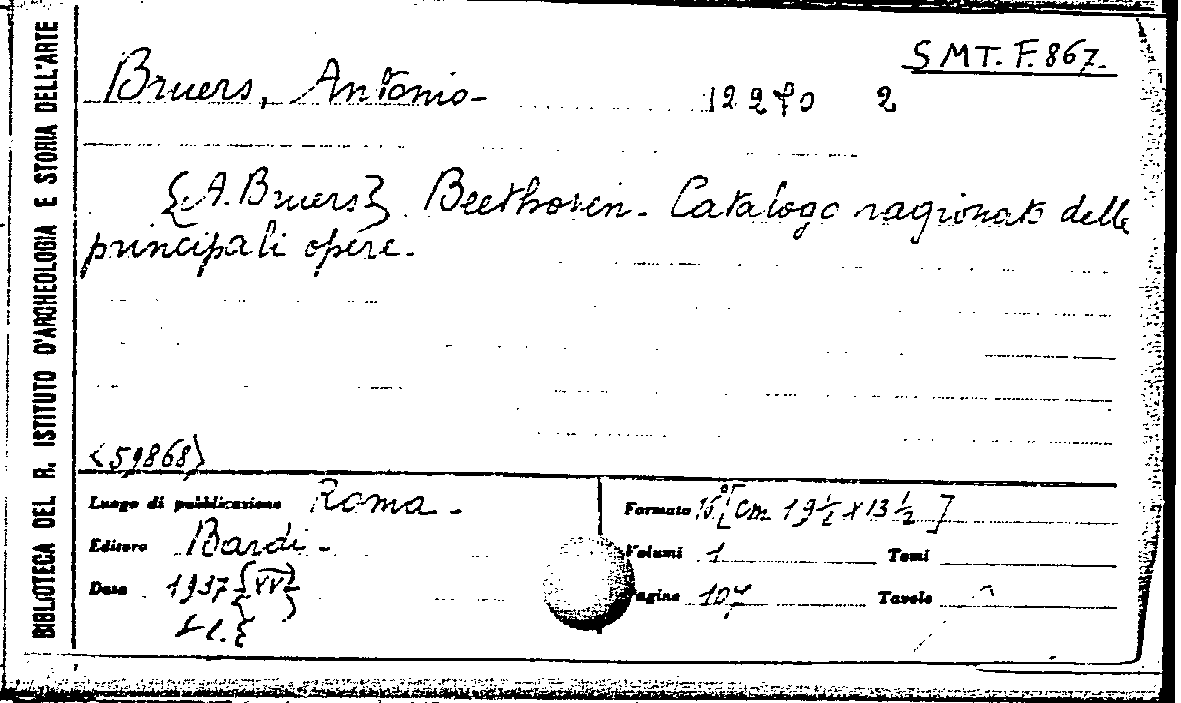 BIBLIOTECA DEL R. ISTITUTO D'ARCHEOLOGIA E STORIA DELL'ARTE
SMT. F. 867.
Bruers, Antonio- 12270 2
{A. Bruers}. Beethoven. Catalogo ragionato delle
principali opere.
<59868>
Luogo di pubblicazione Roma.
Formato 16° [cm 19½ x 13½]
Editore Bardi.
Volumi 1 Tomi
Data 1937 {XV}
Pagine 107 Tavole